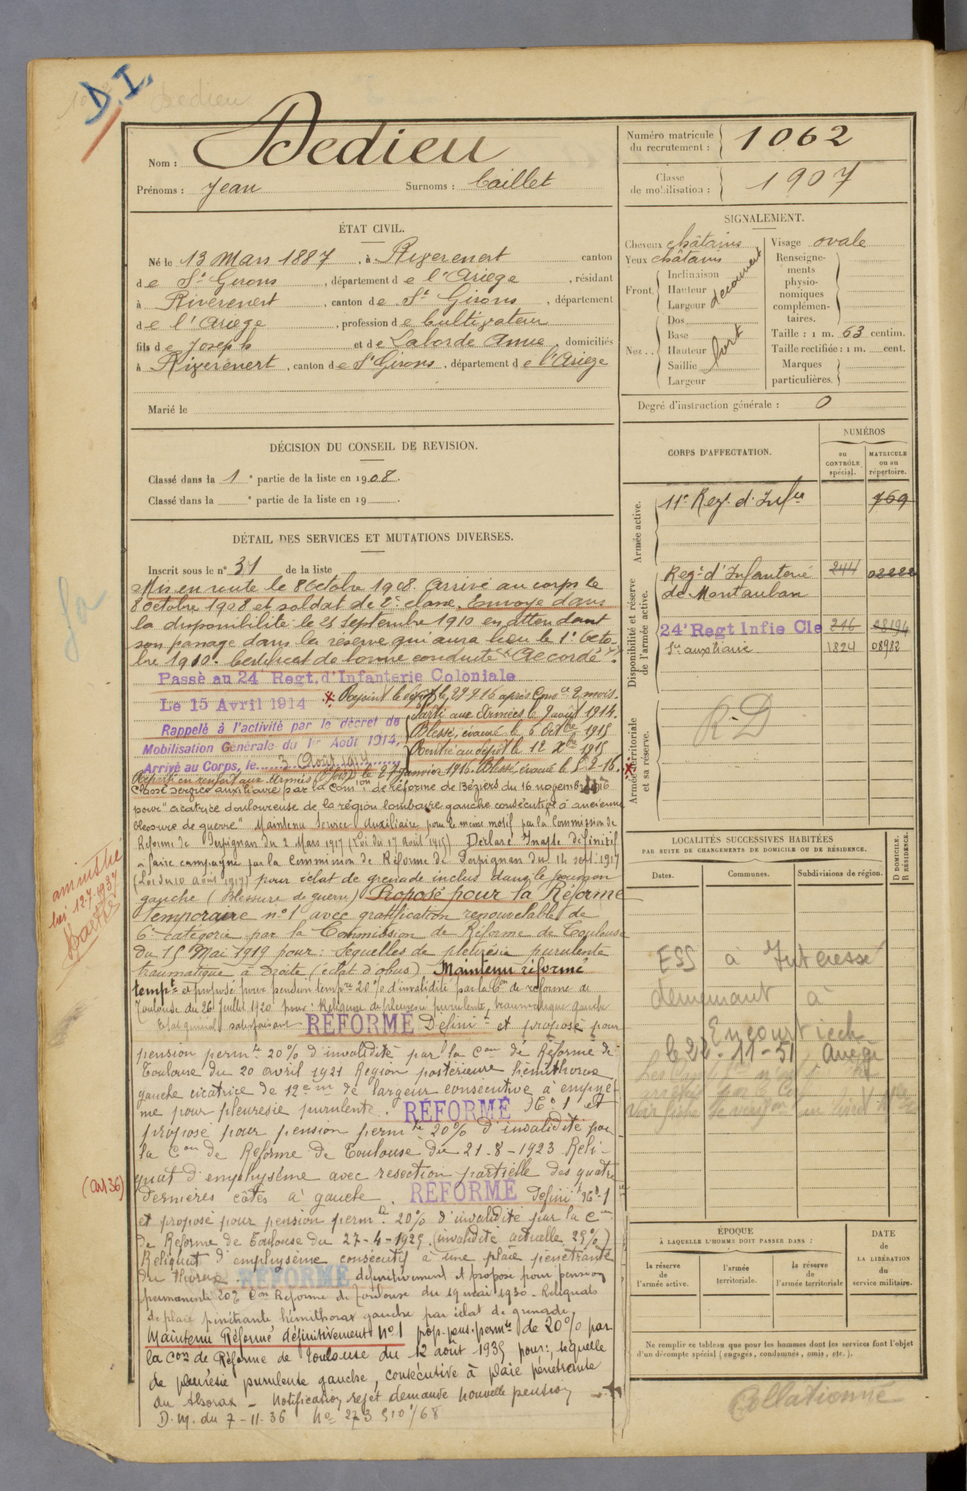 D.I.
Dedieu
Nom : Dedieu
Prénoms : Jean Surnoms : Caillet
Numéro matricule du recrutement : 1062
Classe de mobilisation : 1907
ÉTAT CIVIL.
Né le 13 Mars 1887, à Riverenert canton
de St Girons, département de l'Ariège, résidant
à Riverenert, canton de St Girons, département
de l'Ariège, profession de Cultivateur
fils de Joseph et de Laborde Anne, domiciliés
à Riverenert, canton de St Girons, département de l'Ariège
Marié le
SIGNALEMENT.
Cheveux châtains
Yeux châtains
Front. Inclinaison
Hauteur
Largeur
découvert
Nez.. Dos
Base
Hauteur
Saillie
Largeur
Visage ovale
Renseigne-
ments
physio-
nomiques
complémen-
taires.
Taille : 1 m. 63 centim.
Taille rectifiée : 1 m. cent.
Marques
particulières.
Degré d'instruction générale : 0
DÉCISION DU CONSEIL DE REVISION.
Classé dans la 1e partie de la liste en 1908.
Classé dans la e partie de la liste en 19 .
DÉTAIL DES SERVICES ET MUTATIONS DIVERSES.
Inscrit sous le n° 31 de la liste
Mis en route le 8 Octobre 1908. Arrivé au corps le
8 octobre 1908 et soldat de 2e classe. Envoyé dans
la disponibilité le 25 Septembre 1910 en attendant
son passage dans la réserve qui aura lieu le 1er Octo-
bre 1910. Certificat de bonne conduite "Accordé".
Passé au 24 Regt. d'Infanterie Coloniale
Le 15 Avril 1914
Rejoint le dépôt le 29 2 16 après Conv. ce 2 mois.
Rappelé à l'activité par le décret de
Mobilisation Générale du 1er Août 1914.
Arrivé au Corps, le 3 Août 1914
Parti aux Armées le 9 août 1914.
Blessé, évacué le 6 Oct.bre 1915
Rentré au dépôt le 12 Xbre 1915
Reparti en renfort aux Armées le 27 janvier 1916. Blessé évacué le 5-2-16.
Classé service auxiliaire par la Comion de réforme de Béziers du 16 novembre 1916
pour "cicatrice douloureuse de la région lombaire gauche consécutive à ancienne
blessure de guerre" Maintenu Service Auxiliaire pour le même motif par la Commission de
Réforme de Perpignan du 2 Mars 1917 (Loi du 17 août 1915) Déclaré Inapte définitif
à faire campagne par la Commission de Réforme de Perpignan du 14 sept. 1917
(Loi du 10 août 1917) pour éclat de grenade inclus dans le poumon
gauche (blessure de guerre) Proposé pour la Réforme
temporaire n° 1 avec gratification renouvelable de
6e catégorie par la Commission de Réforme de Toulouse
du 15 Mai 1919 pour : Sequelles de pleurésie purulente
traumatique à droite (éclat d'obus) Maintenu réforme
tempre et proposé pour pension tempre 20% d'invalidité par la Con de réforme de
Toulouse du 26 Juillet 1920 pour : Reliquat de pleurésie purulente, traumatique gauche
Etat général satisfaisant RÉFORMÉ Définit et proposé pour
pension permte 20% d'invalidité par la Con de Réforme de
Toulouse du 20 avril 1921 Région postérieure hémithorax
gauche cicatrice de 12 cm de largeur consécutive à empyè-
me pour pleurésie purulente. RÉFORMÉ No 1 et
proposé pour pension permte 20% d'invalidité par
la Con de Réforme de Toulouse du 21-8-1923 Reli-
quat d'emphysème avec resection partielle des quatre
dernières côtes à gauche. RÉFORMÉ Définit No 1
et proposé pour pension permte 20% d'invalidité par la Con
de Réforme de Toulouse du 27-4-1925 (invalidité actuelle 25%)
Reliquat d'emphysème consécutif à une plaie pénétrante
du thorax RÉFORMÉ définitivement et proposé pour pension
permanente 20% Con Réforme de Toulouse du 19 mai 1930. Reliquats
de plaie pénétrante hémithorax gauche par éclat de grenade,
Maintenu Réformé définitivement No 1 prop. pens. permte de 20% par
la Con de Réforme de Toulouse du 12 août 1935 pour : séquelle
de pleurésie purulente gauche, consécutive à plaie pénétrante
du thorax - Notification rejet demande nouvelle pension
D.M. du 7-11-36 No 273 510/68
amnistie
loi 12-7-1937
(art 36)
CORPS D'AFFECTATION.
NUMÉROS
au CONTRÔLE spécial.
MATRICULE ou au répertoire.
Armée active.
11e Reg. d'Infie 769
Disponibilité et réserve de l'armée active.
Regt d'Infanterie 244
de Montauban
24e Regt Infie Cle 216 08194
Son auxiliaire 1824 08982
Armée territoriale et sa réserve.
R-D
LOCALITÉS SUCCESSIVES HABITÉES
PAR SUITE DE CHANGEMENTS DE DOMICILE OU DE RÉSIDENCE.
Dates. Communes. Subdivisions de région.
D DOMICILE. R RÉSIDENCE.
ESS à Intéressé
demeurant à
Encourtiech
le 22-11-51 Ariège
ÉPOQUE
À LAQUELLE L'HOMME DOIT PASSER DANS :
la réserve de l'armée active.
l'armée territoriale.
la réserve de l'armée territoriale
DATE de LA LIBÉRATION du service militaire.
Ne remplir ce tableau que pour les hommes dont les services font l'objet
d'un décompte spécial (engagés, condamnés, omis, etc.).
Collationné